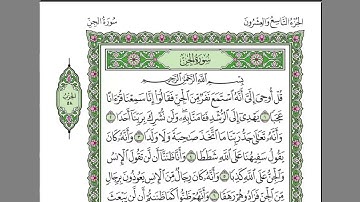 سُورَةُ الجِنِّ
الجُزْءُ التَّاسِعُ وَالعِشْرُونَ
سُورَةُ الجِنِّ
بِسْمِ اللَّهِ الرَّحْمَٰنِ الرَّحِيمِ
قُلْ أُوحِيَ إِلَيَّ أَنَّهُ اسْتَمَعَ نَفَرٌ مِنَ الْجِنِّ فَقَالُوا إِنَّا سَمِعْنَا قُرْآنًا
عَجَبًا ١ يَهْدِي إِلَى الرُّشْدِ فَآمَنَّا بِهِ وَلَنْ نُشْرِكَ بِرَبِّنَا أَحَدًا ٢
وَأَنَّهُ تَعَالَىٰ جَدُّ رَبِّنَا مَا اتَّخَذَ صَاحِبَةً وَلَا وَلَدًا ٣ وَأَنَّهُ كَانَ
يَقُولُ سَفِيهُنَا عَلَى اللَّهِ شَطَطًا ٤ وَأَنَّا ظَنَنَّا أَنْ لَنْ تَقُولَ الْإِنْسُ
وَالْجِنُّ عَلَى اللَّهِ كَذِبًا ٥ وَأَنَّهُ كَانَ رِجَالٌ مِنَ الْإِنْسِ يَعُوذُونَ بِرِجَالٍ
مِنَ الْجِنِّ فَزَادُوهُمْ رَهَقًا ٦ وَأَنَّهُمْ ظَنُّوا كَمَا ظَنَنْتُمْ أَنْ لَنْ يَبْعَثَ
الحزب